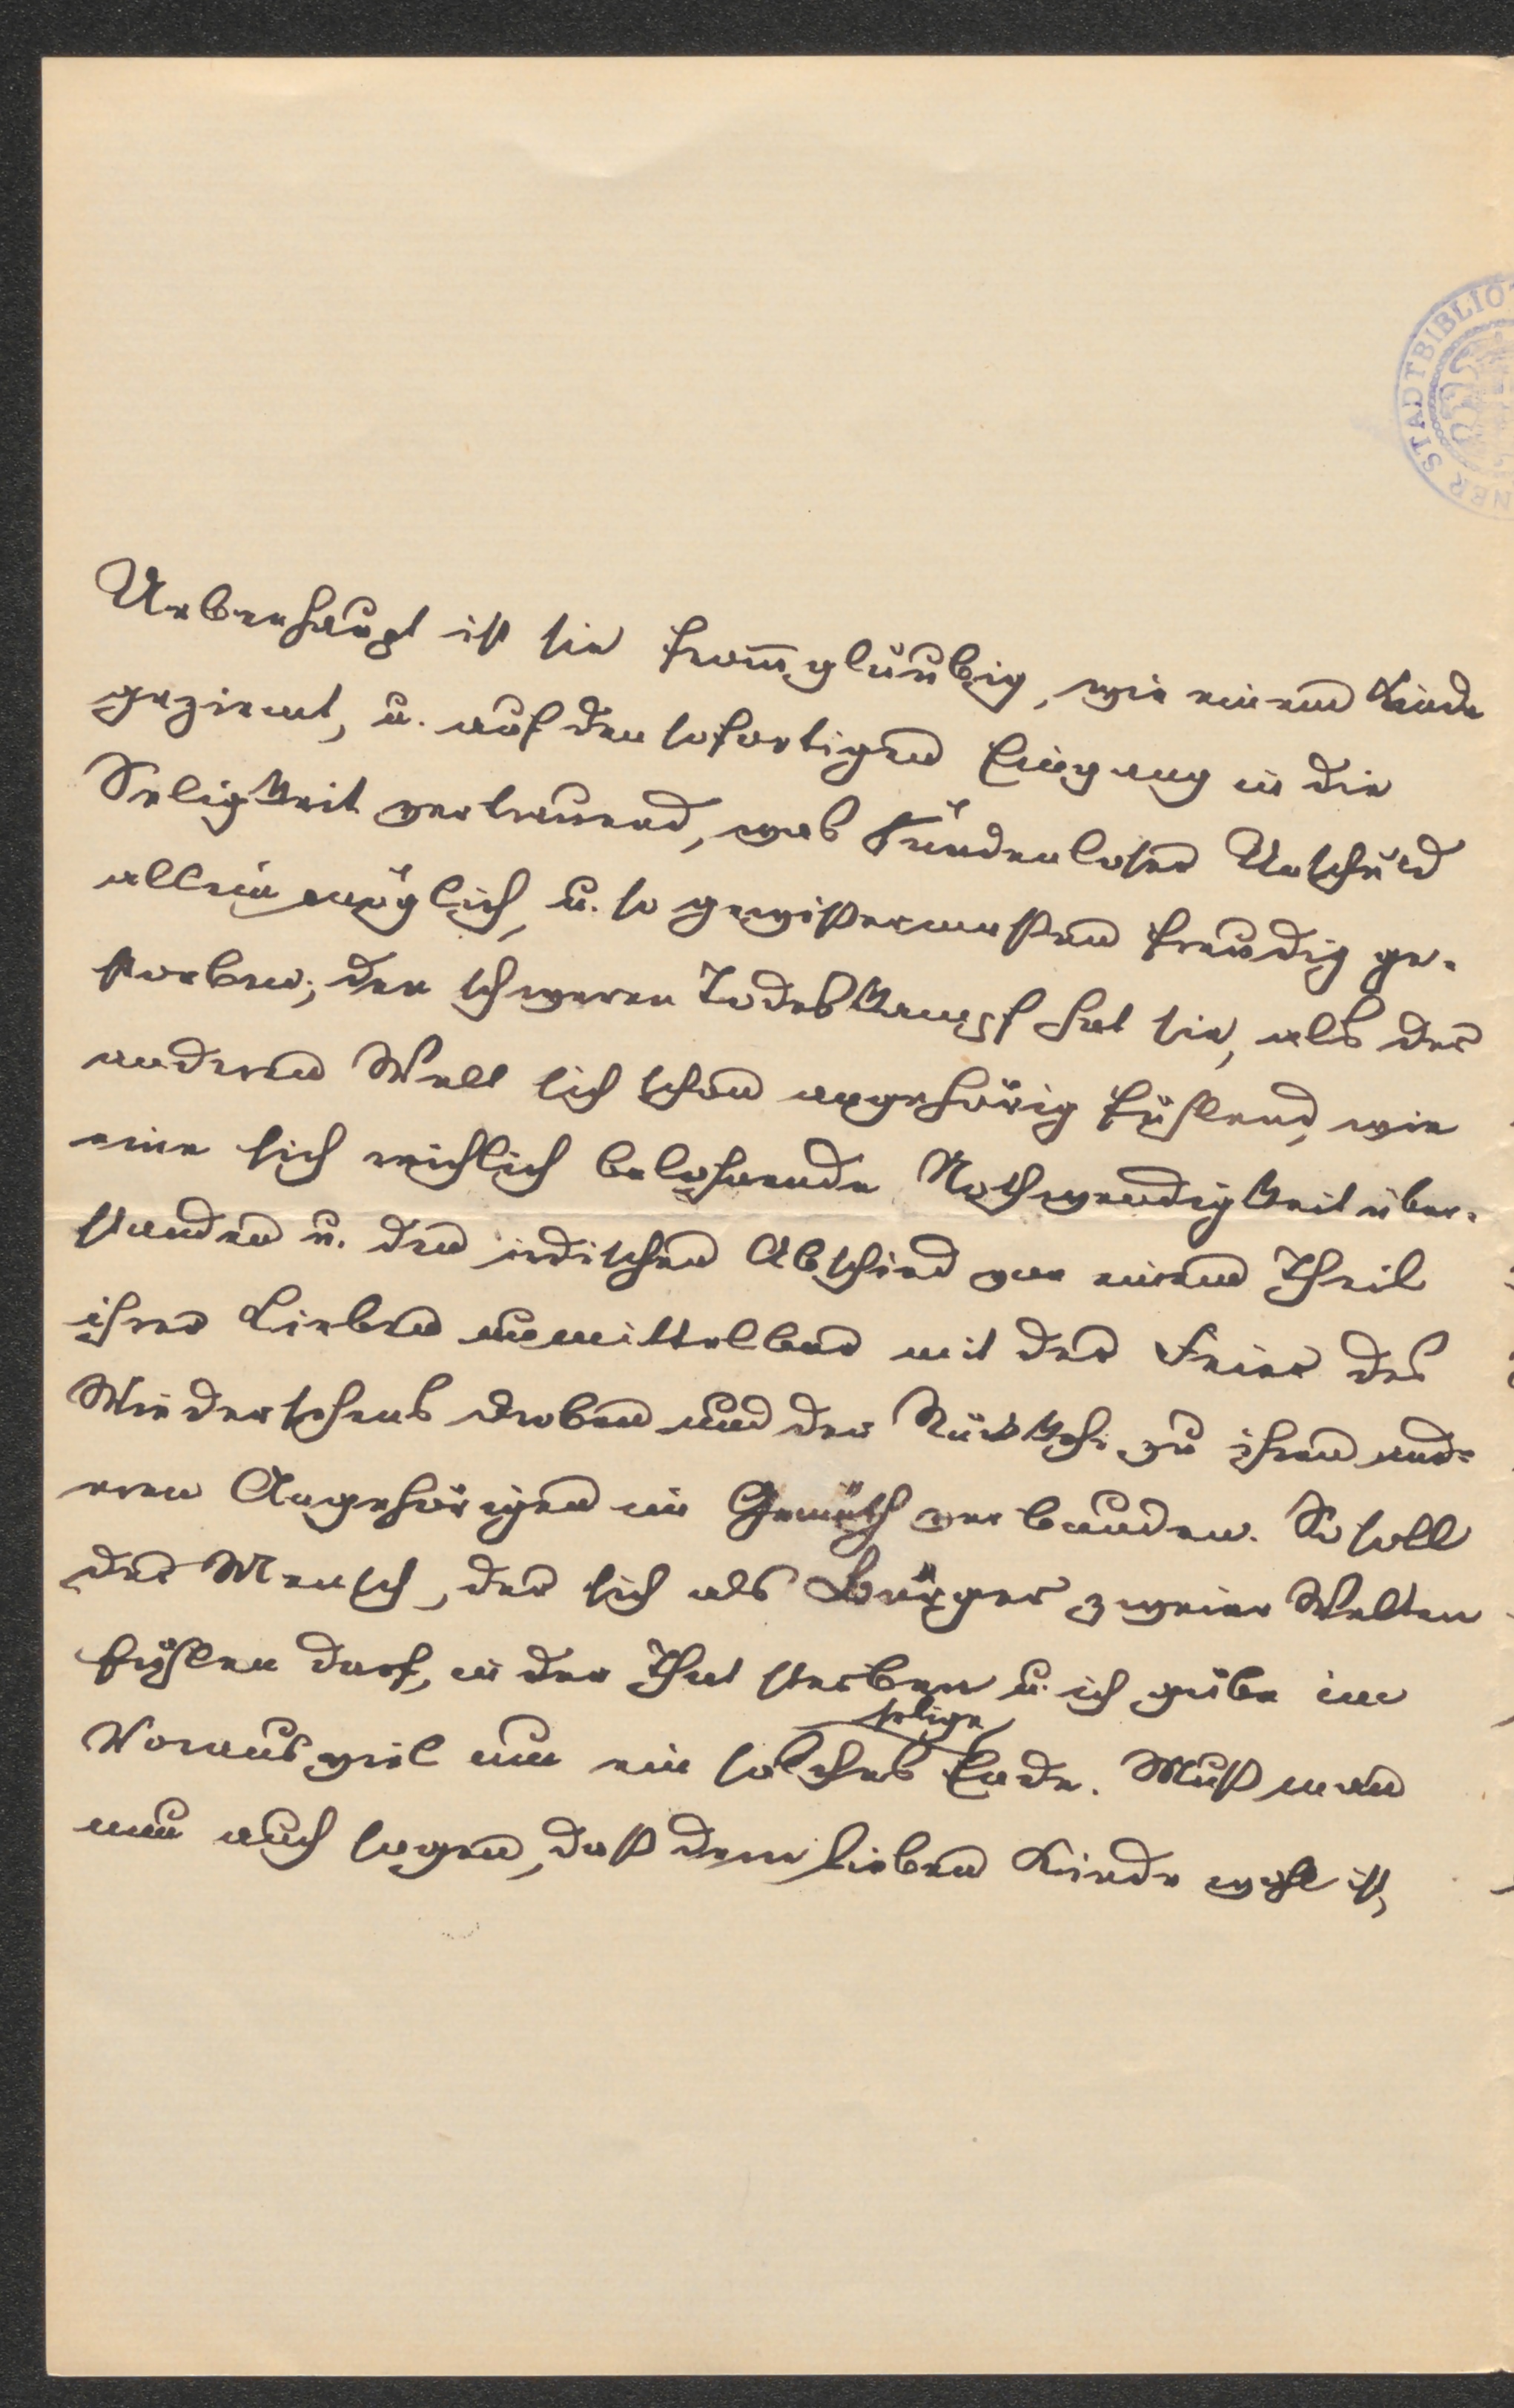 Ueberhaupt ist sie from̅gläubig, wie einem Kinde
geziemt, u. auf den sofortigen Eingang in die
Seligkeit vertrauend, was sündenloser Unschuld
allein möglich, u. so gewißermaßen freudig ge-
storben; den schweren Todeskampf hat sie, als der
anderen Welt sich schon angehörig fühlend, wie
eine sich reichlich belohnende Nothwendigkeit über-
standen u. den irdischen Abschied von einem Theil
ihrer Lieben unmittelbar mit der Feier des
Wiedersehens droben und der Rückkehr zu ihren and-
eren Angehörigen im Gemüth verbunden. So soll
der Mensch, der sich als Bürger zweier Welten
fühlen darf, in der That sterben u. ich gäbe im
selige
Voraus viel um ein solches Ende. Muß man
nun auch sagen, daß dem lieben Kinde wohl ist,
NER STADTBIBLIO